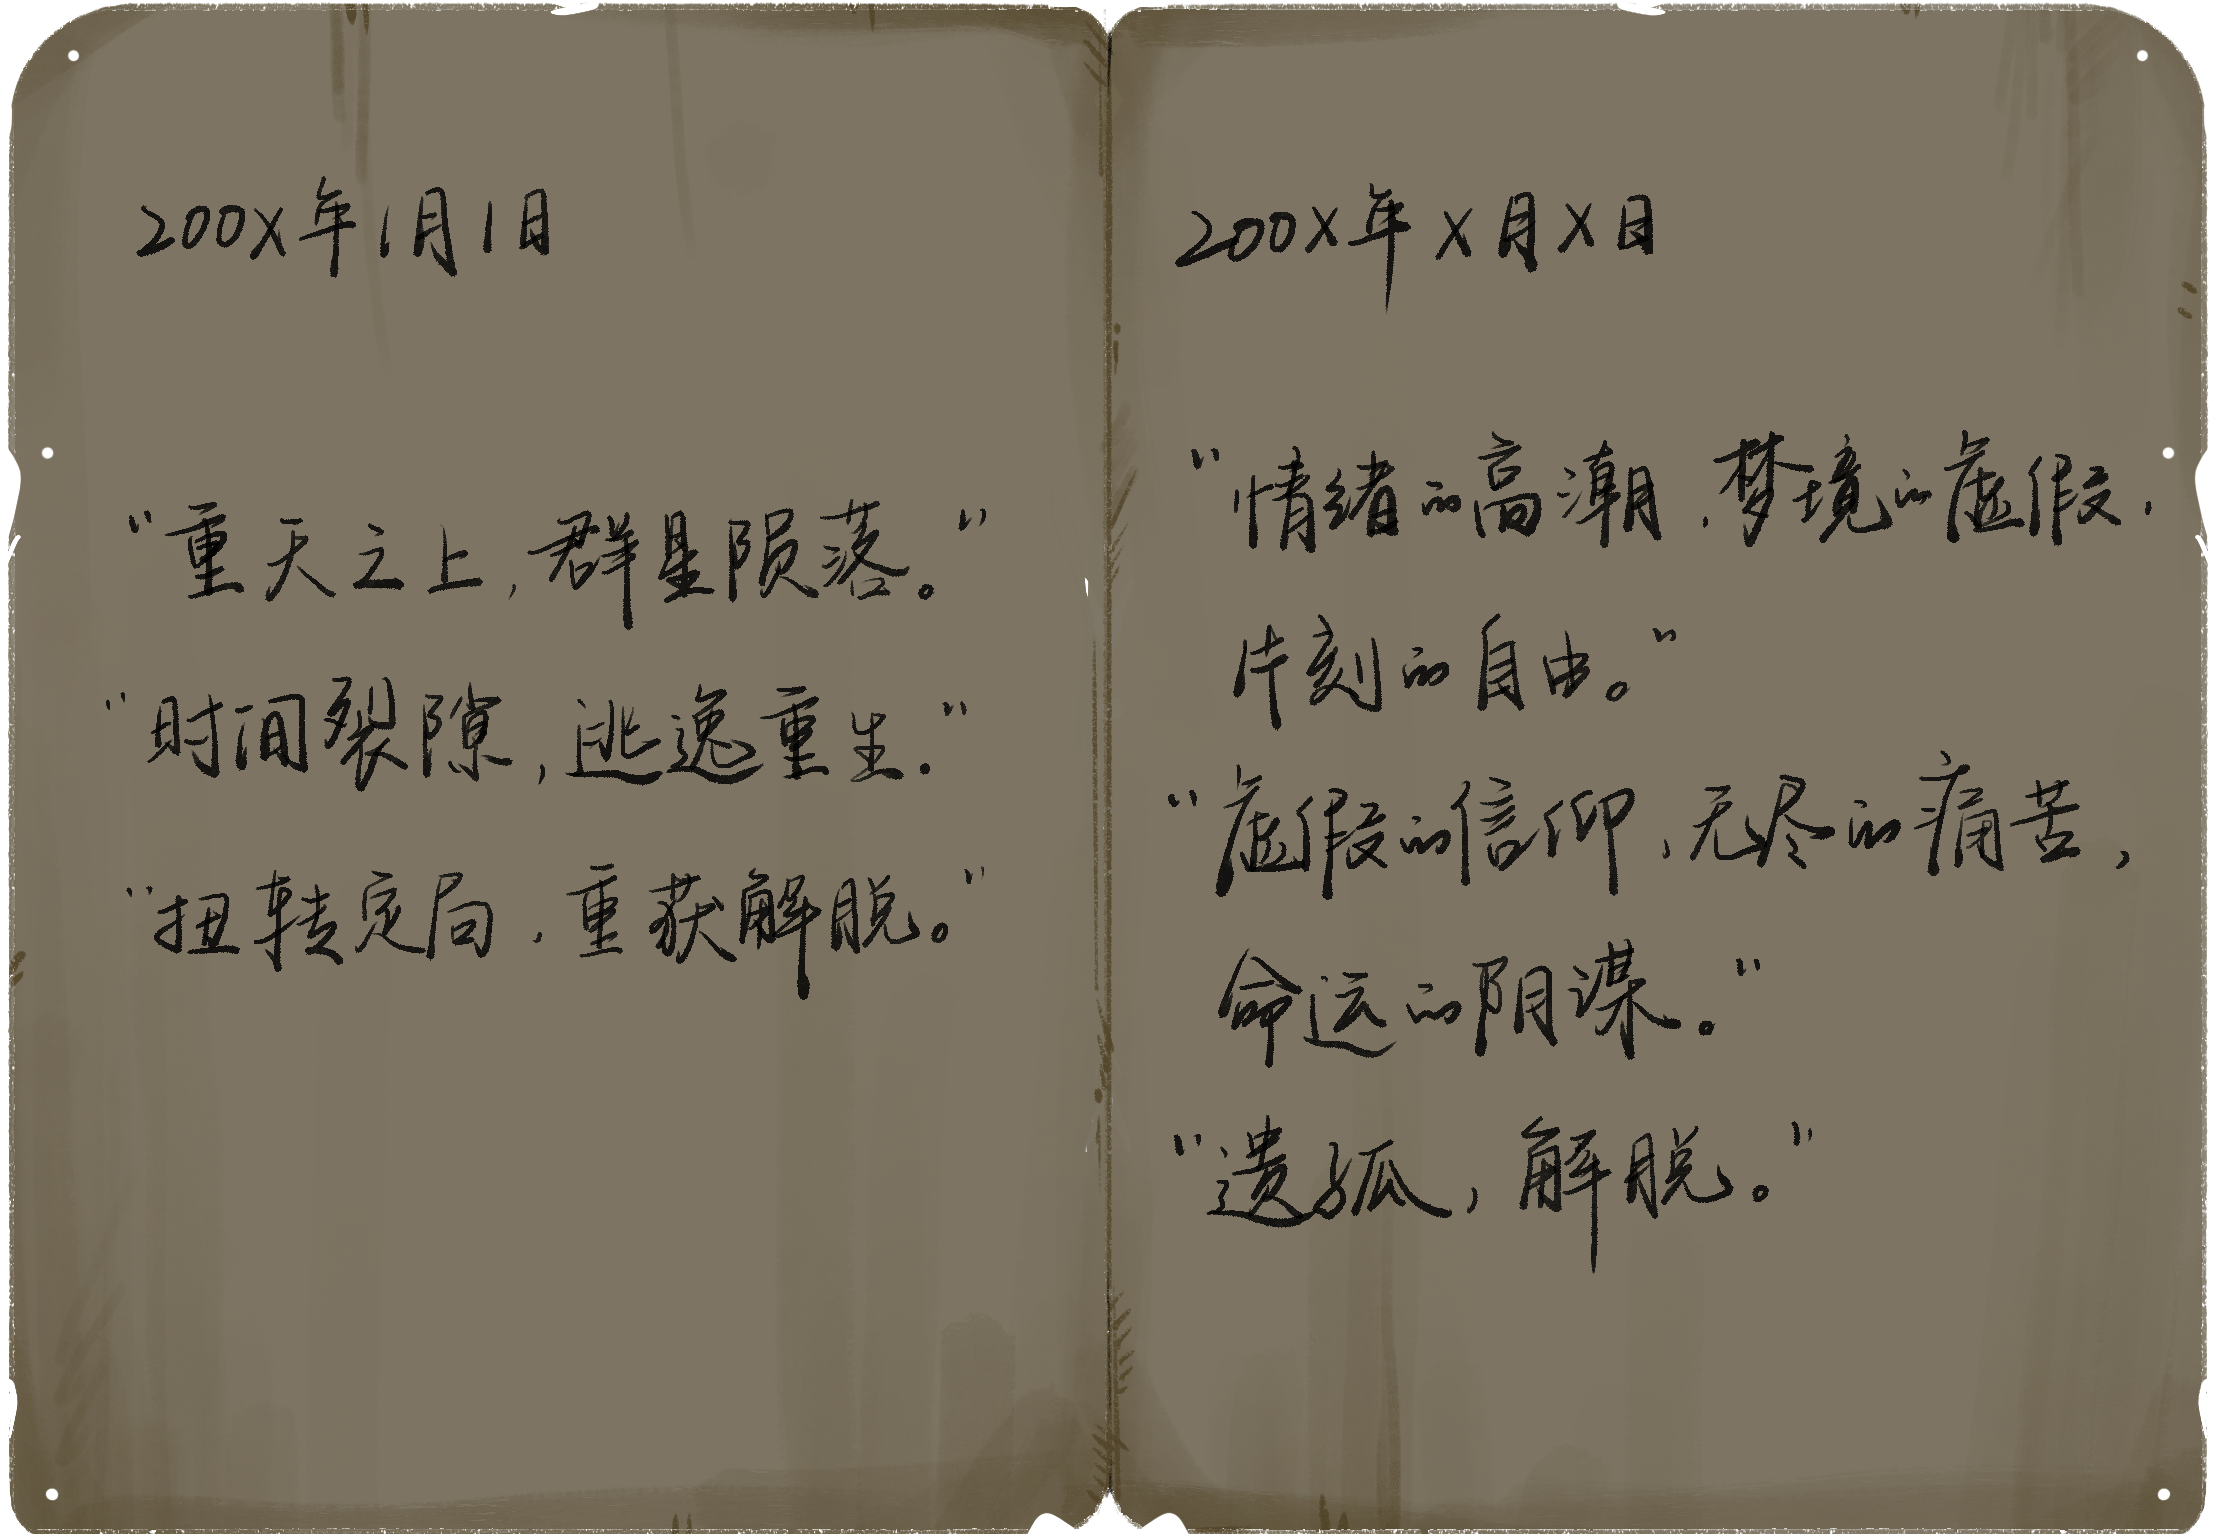 200X年1月1日
“重天之上,群星陨落。”
“时间裂隙,逃逸重生.”
“扭转定局,重获解脱。”
200X年X月X日
“情绪的高潮,梦境的虚假,
片刻的自由。”
“虚假的信仰,无尽的痛苦,
命运的阴谋。”
“遗孤,解脱。”